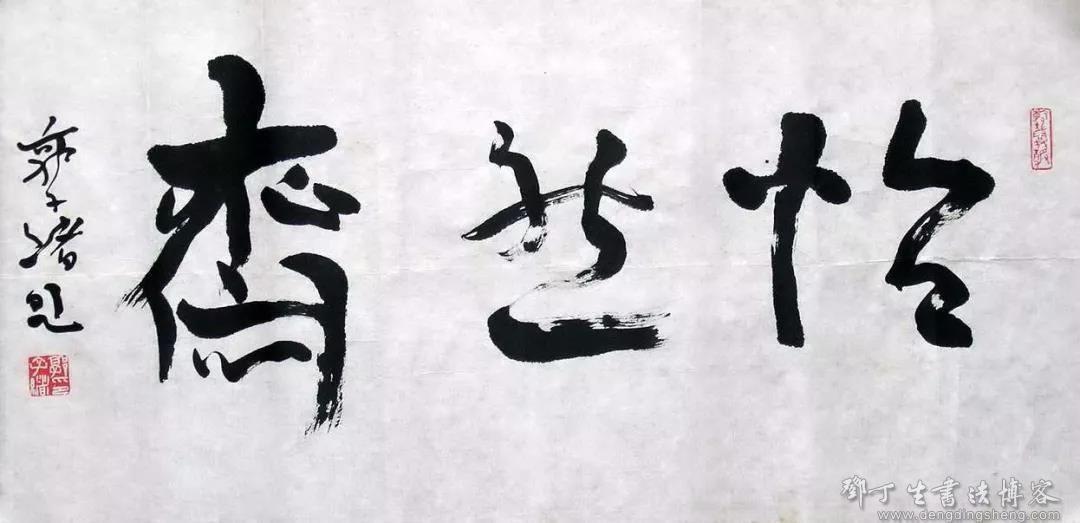 怡然齋
郭子緒
鄧丁生書法博客
www.dengdingsheng.com